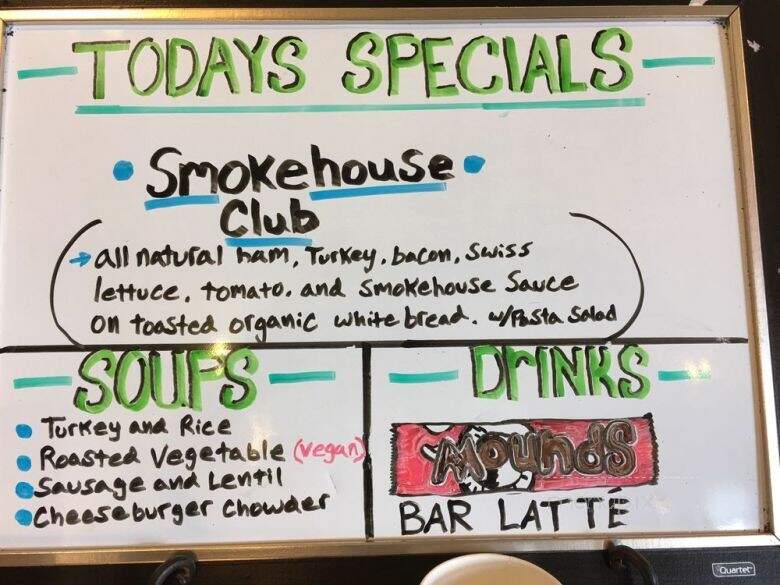 TODAYS SPECIALS
Smokehouse
Club
all natural ham, Turkey, bacon, Swiss
lettuce, tomato, and Smokehouse Sauce
on toasted organic white bread. w/Pasta Salad
SOUPS
Turkey and Rice
Roasted Vegetable (vegan)
Sausage and Lentil
Cheeseburger Chowder
DRINKS
Mounds
BAR LATTE
Quartet